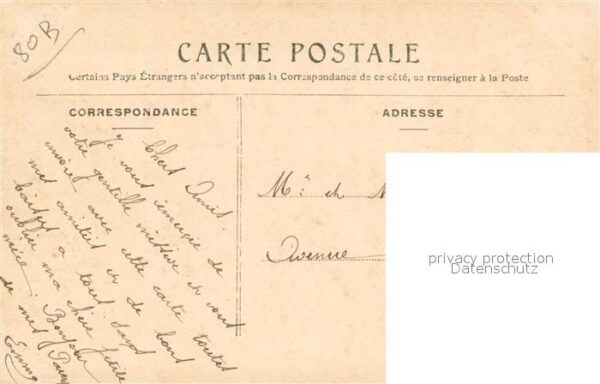 80B
CARTE POSTALE
Certains Pays Étrangers n'acceptant pas la Correspondance de ce côté, se renseigner à la Poste
CORRESPONDANCE
ADRESSE
Chers Amis
Je vous remercie de
votre gentille missive et vous
envoie avec cette carte toutes
mes amitiés et de bons
baisers a tous sans
oublier ma chère petite
nièce. Bonjour
de mes
Emma
Mr et M
Avenue
privacy protection
Datenschutz